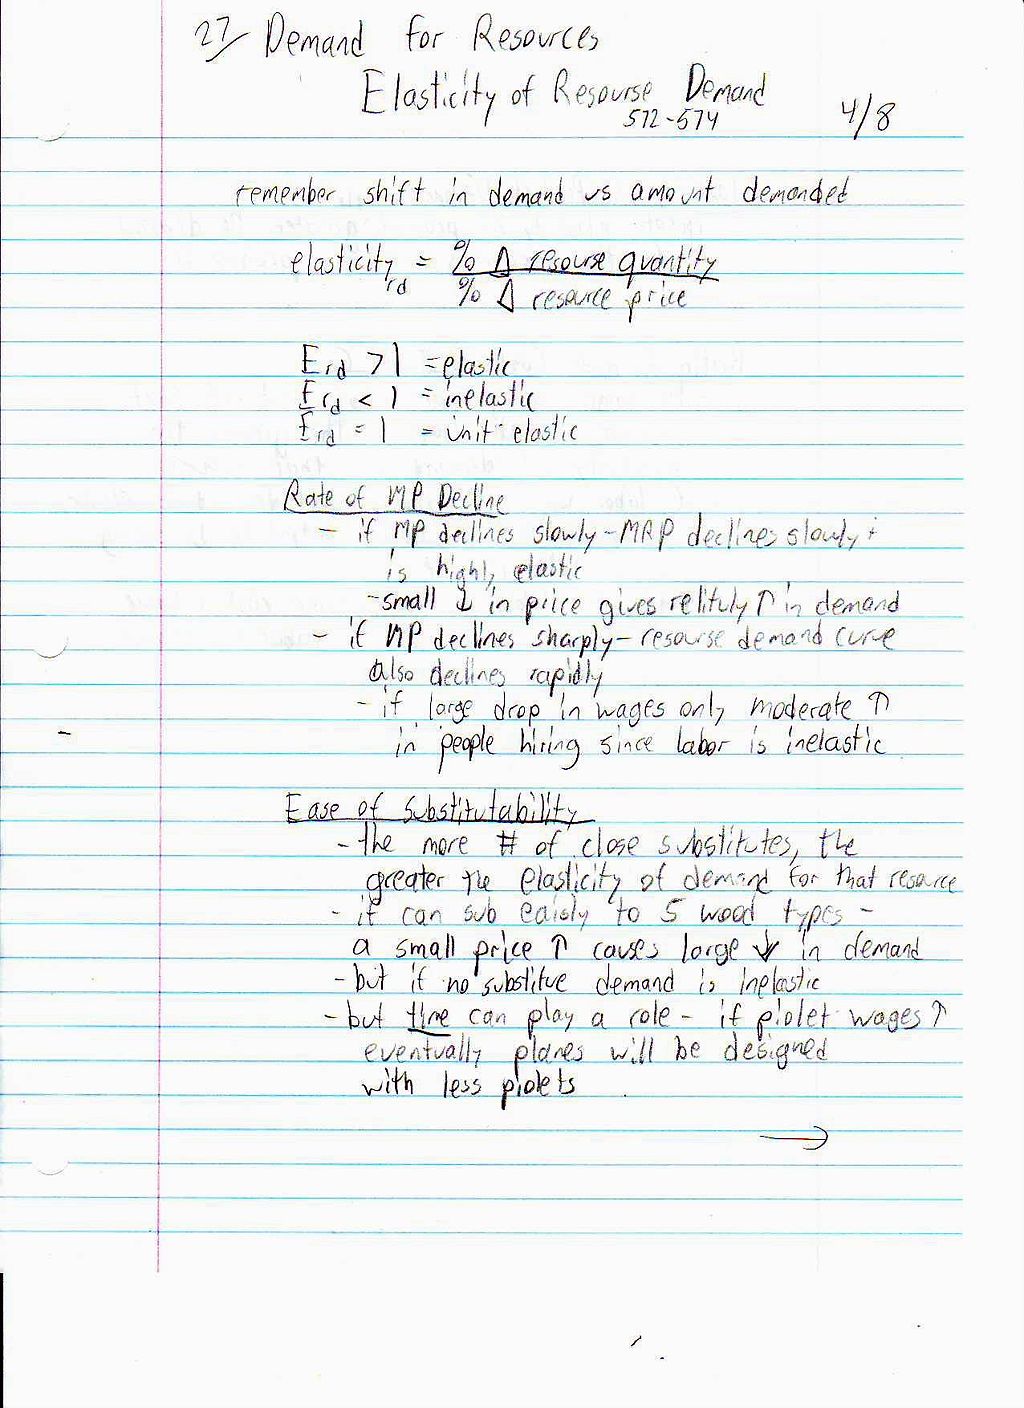 27/ Demand for Resources
Elasticity of Resourse Demand
572-574 4/8
remember shift in demand vs amount demanded
elasticity rd = % Δ resourse quantity
% Δ resource price
Erd > 1 = elastic
Erd < 1 = inelastic
Erd = 1 = unit elastic
Rate of MP Decline
- if MP declines slowly - MRP declines slowly +
is highly elastic
- small ↓ in price gives relituly ↑ in demand
- if MP declines sharply - resourse demand curve
also declines rapidly
- if large drop in wages only moderate ↑
in people hiring since labor is inelastic
Ease of Substitutability
- the more # of close substitutes, the
greater the elasticity of demand for that resource
- if can sub eaisly to 5 wood types -
a small price ↑ causes large ↓ in demand
- but if no substitue demand is inelastic
- but time can play a role - if piolet wages ↑
eventually planes will be designed
with less piolets
→